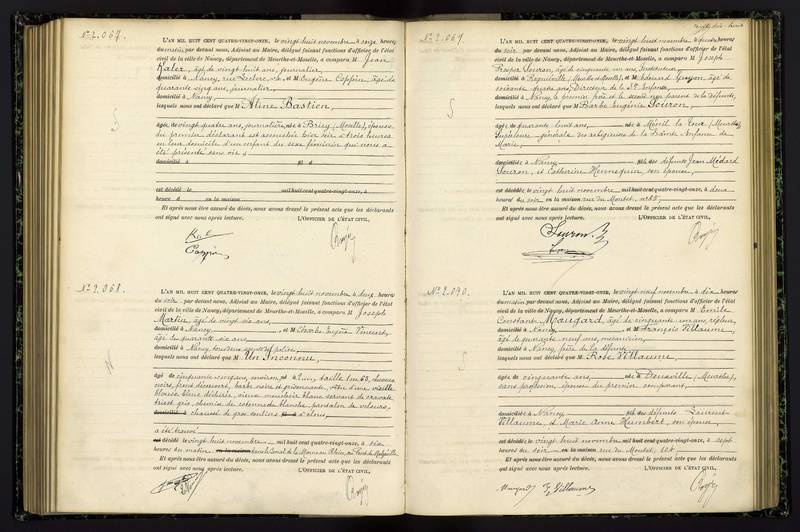 N° 2.067.
L'AN MIL HUIT CENT QUATRE-VINGT-ONZE, le vingt huit novembre à onze heures
du matin par devant nous, Adjoint au Maire, délégué faisant fonctions d'officier de l'état
civil de la ville de Nancy, département de Meurthe-et-Moselle, a comparu M Jean
Kalez, âgé de vingt huit ans, journalier,
domicilié à Nancy, rue et M Eugène Coppin, âgé de
quarante cinq ans, journalier,
domicilié à Nancy,
lesquels nous ont déclaré que M Aline Bastien,
âgée de vingt quatre ans, journalière, née à Briey (Moselle), épouse
du premier déclarant est accouchée hier soir à trois heures
en leur domicile d'un enfant du sexe féminin qui nous a
été présenté sans vie
domicilié à
est décédé le mil huit cent quatre-vingt-onze, à
heure d en la maison
Et après nous être assuré du décès, nous avons dressé le présent acte que les déclarants
ont signé avec nous après lecture. L'OFFICIER DE L'ÉTAT CIVIL,
Kal
Coppin
N° 2.068.
L'AN MIL HUIT CENT QUATRE-VINGT-ONZE, le vingt huit novembre à deux heures
du soir par devant nous, Adjoint au Maire, délégué faisant fonctions d'officier de l'état
civil de la ville de Nancy, département de Meurthe-et-Moselle, a comparu M Joseph
Martin, âgé de vingt six ans,
domicilié à Nancy, et M Charles Eugène Vincent,
âgé de quarante six ans,
domicilié à Nancy, tous deux agents de police,
lesquels nous ont déclaré que M Un Inconnu,
âgé de cinquante cinq ans, environ, taille 1m65, cheveux
noirs, front découvert, barbe noire et grisonnante, vêtu d'une vieille
blouse bleue déchirée, vieux mouchoir blanc servant de cravate
tricot gris, chemise de cotonnade blanche, pantalon de velours,
domicilié à chaussé de gros souliers
a été trouvé
décédé le vingt huit novembre mil huit cent quatre-vingt-onze, à six
heures du matin en la maison dans le Canal de la Marne au Rhin, au Pont de Malzéville
Et après nous être assuré du décès, nous avons dressé le présent acte que les déclarants
ont signé avec nous après lecture. L'OFFICIER DE L'ÉTAT CIVIL,
N° 2.069.
L'AN MIL HUIT CENT QUATRE-VINGT-ONZE, le vingt huit novembre à heures
du soir par devant nous, Adjoint au Maire, délégué faisant fonctions d'officier de l'état
civil de la ville de Nancy, département de Meurthe-et-Moselle, a comparu M Joseph
Prosper Souron, âgé de cinquante
domicilié à (Meurthe et Moselle), et M Edouard Guyon, âgé de
soixante quatre ans, Directeur de la Ste Enfance,
domicilié à Nancy, le premier frère et le second non parent de la défunte,
lesquels nous ont déclaré que M Barbe Eugénie Souron,
âgée de quarante huit ans, née à Ménil la Tour (Meurthe),
Supérieure générale des religieuses de la Sainte Enfance de
Marie,
domiciliée à Nancy fille des défunts Jean Médard
Souron, et Catherine Hennequin, son épouse,
est décédée, le vingt huit novembre mil huit cent quatre-vingt-onze, à deux
heures du soir en la maison rue du Montet, n° 85,
Et après nous être assuré du décès, nous avons dressé le présent acte que les déclarants
ont signé avec nous après lecture. L'OFFICIER DE L'ÉTAT CIVIL,
Souron
N° 2.090.
L'AN MIL HUIT CENT QUATRE-VINGT-ONZE, le vingt neuf novembre à dix heures
du matin par devant nous, Adjoint au Maire, délégué faisant fonctions d'officier de l'état
civil de la ville de Nancy, département de Meurthe-et-Moselle, a comparu M Emile
Constant Maugard, âgé de cinquante un ans, régleur,
domicilié à Nancy et M François Villaume,
âgé de quarante neuf ans, menuisier,
domicilié à Nancy, frère de la défunte,
lesquels nous ont déclaré que M Rose Villaume,
âgée de cinquante ans, née à (Meurthe),
sans profession, épouse du premier comparant,
domiciliée à Nancy fille des défunts Laurent
Villaume, et Marie Anne Humbert, son épouse,
est décédée, le vingt huit novembre mil huit cent quatre-vingt-onze, à sept
heures du soir en la maison rue du Montet, 104,
Et après nous être assuré du décès, nous avons dressé le présent acte que les déclarants
ont signé avec nous après lecture. L'OFFICIER DE L'ÉTAT CIVIL,
Maugard Villaume